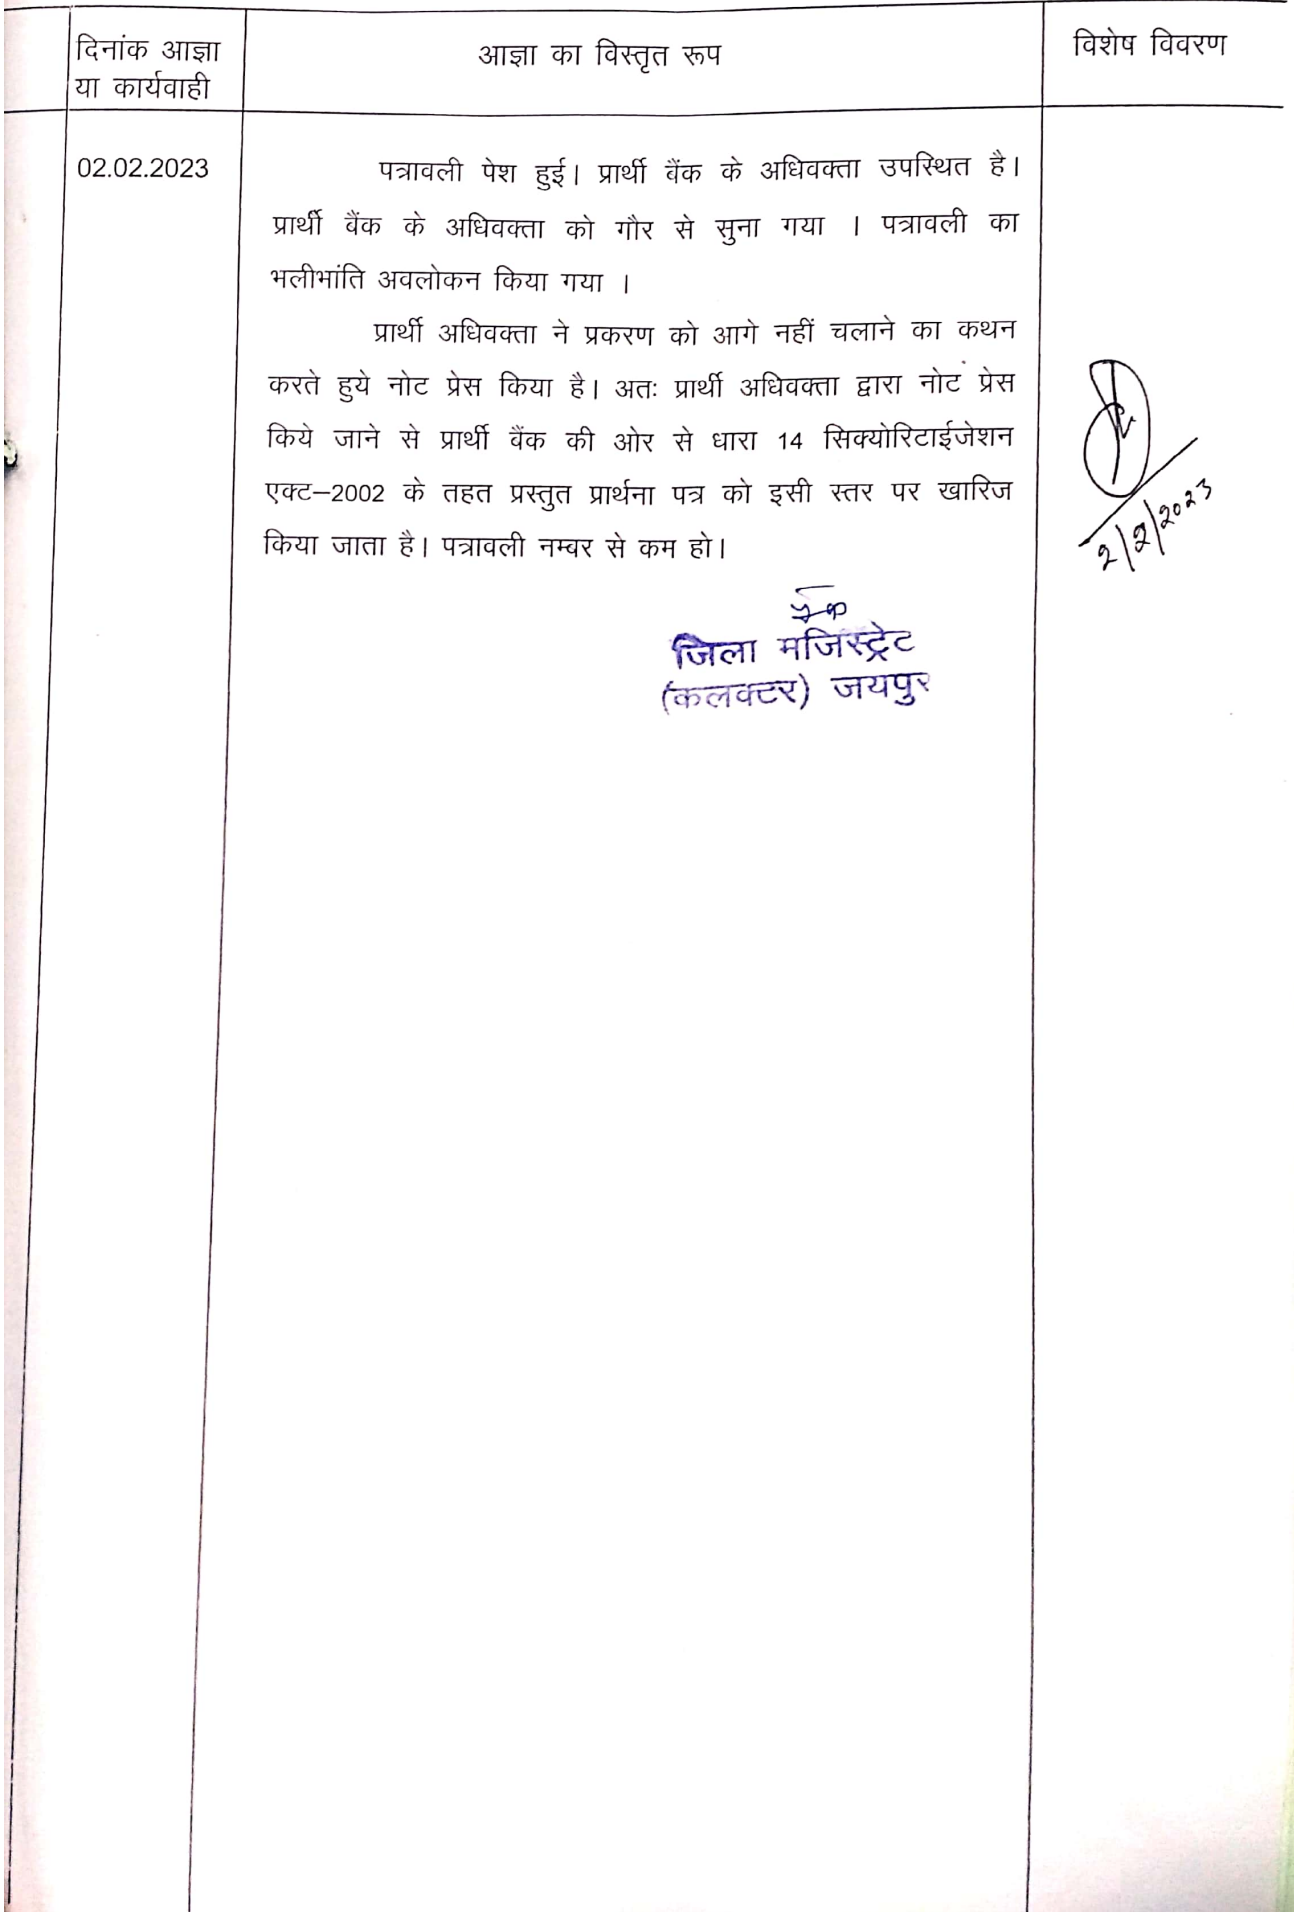 दिनांक आज्ञा
या कार्यवाही
आज्ञा का विस्तृत रूप
विशेष विवरण
02.02.2023
पत्रावली पेश हुई। प्रार्थी बैंक के अधिवक्ता उपस्थित है।
प्रार्थी बैंक के अधिवक्ता को गौर से सुना गया । पत्रावली का
भलीभांति अवलोकन किया गया ।
प्रार्थी अधिवक्ता ने प्रकरण को आगे नहीं चलाने का कथन
करते हुये नोट प्रेस किया है। अतः प्रार्थी अधिवक्ता द्वारा नोट प्रेस
किये जाने से प्रार्थी बैंक की ओर से धारा 14 सिक्योरिटाईजेशन
एक्ट–2002 के तहत प्रस्तुत प्रार्थना पत्र को इसी स्तर पर खारिज
किया जाता है। पत्रावली नम्बर से कम हो।
2/2/2023
जिला मजिस्ट्रेट
(कलक्टर) जयपुर